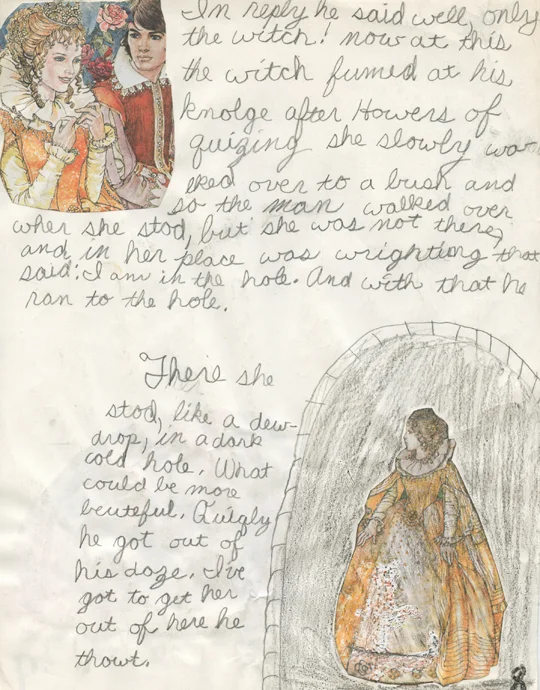 In reply he said well, only
the witch! now at this
the witch fumed at his
knolge after Howers of
quizing she slowly wa-
lked over to a bush and
so the man walked over
wher she stod, but she was not there,
and in her place was wrighting that
said: I am in the hole. And with that he
ran to the hole.
There she
stod, like a dew-
drop, in a dark
cold hole. What
could be more
beuteful. Quigly
he got out of
his doze. I've
got to get her
out of here he
thowt.
8